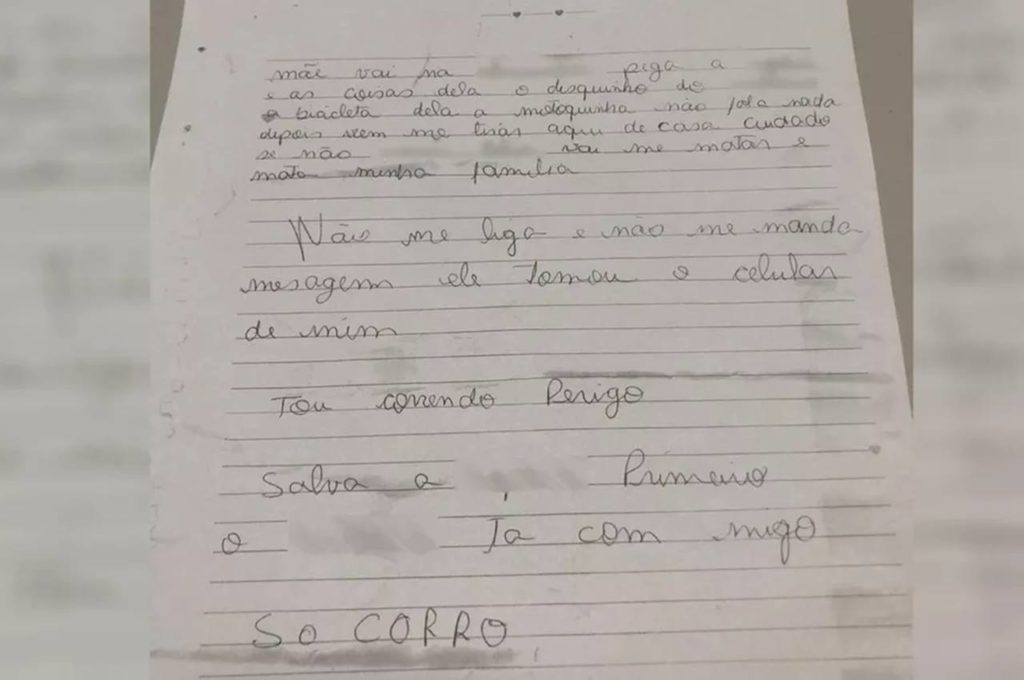 mãe vai na piga a
e as coisas dela o disquinho de
a bicicleta dela a motoquinha não fala nada
depois vem me tirar aqui de casa cuidado
se não vai me matar e
mata minha familia
Não me liga e não me manda
mesagem ele tomou o celular
de mim
Tou correndo Perigo
Salva a Primeiro
o Ta com migo
SO CORRO